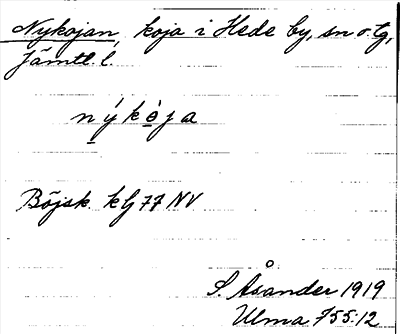 Nykojan, koja i Hede by, sn o. tg,
Jämtl l.
nýkòja
Böjsk. klj 77 NV
S. Åsander 1919
Ulma 755:12